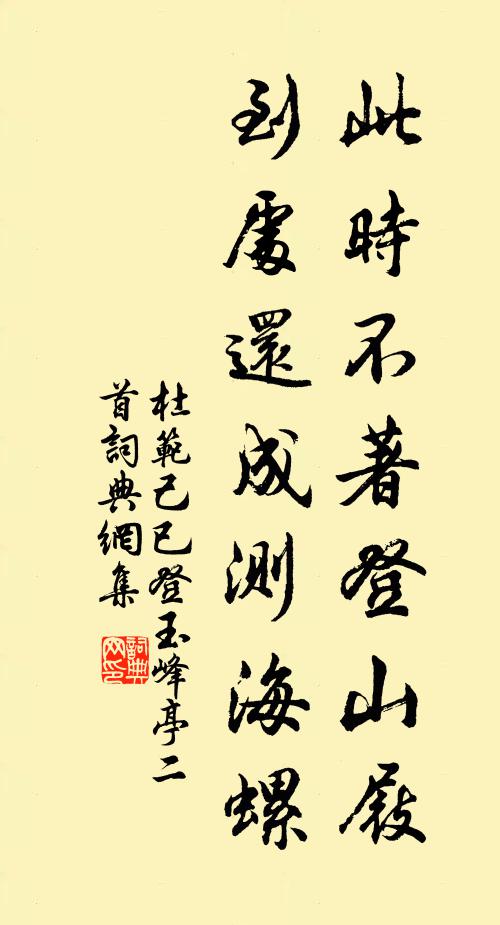 此時不著登山屐
到處還成測海螺
杜範己巳登玉峰亭二
首詞典網集
詞典
网印